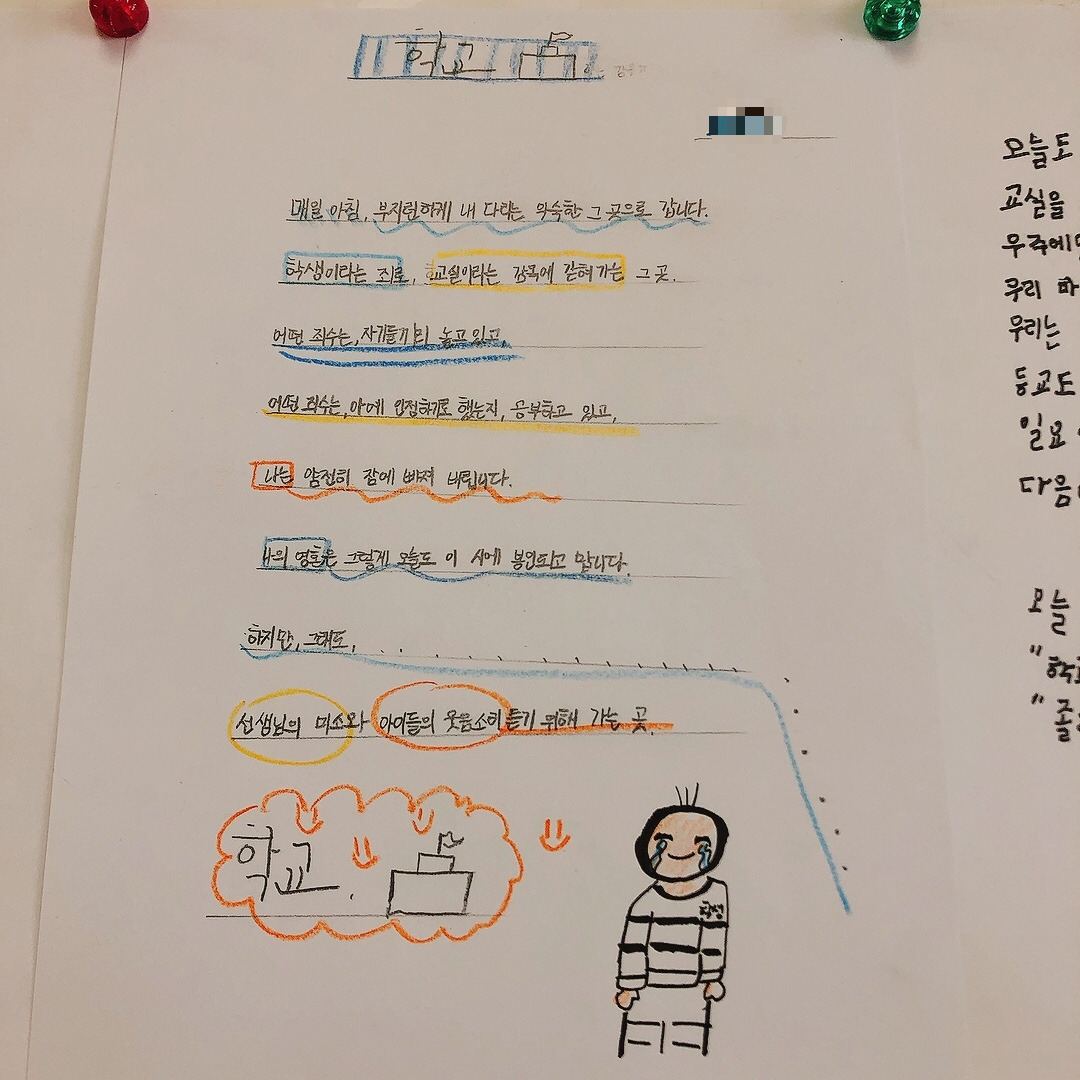 학교
매일 아침, 부지런하게 내 다리는 익숙한 그 곳으로 갑니다.
학생이라는 죄로, 교실이라는 감옥에 갇혀가는 그 곳.
어떤 죄수는, 자기들끼리 놀고 있고,
어떤 죄수는, 아예 인정하기로 했는지, 공부하고 있고,
나는 얌전히 잠에 빠져 버립니다.
나의 영혼은 그렇게 오늘도 이 시에 봉인되고 맙니다.
하지만, 그래도, . . . . . . . . . . . . . . . . . .
선생님의 미소와 아이들의 웃음소리 듣기 위해 가는 곳.
학교.
학생
오늘도
교실을
우주에
우리
우리는
등교도
일요
다음
오늘
"학교
"졸